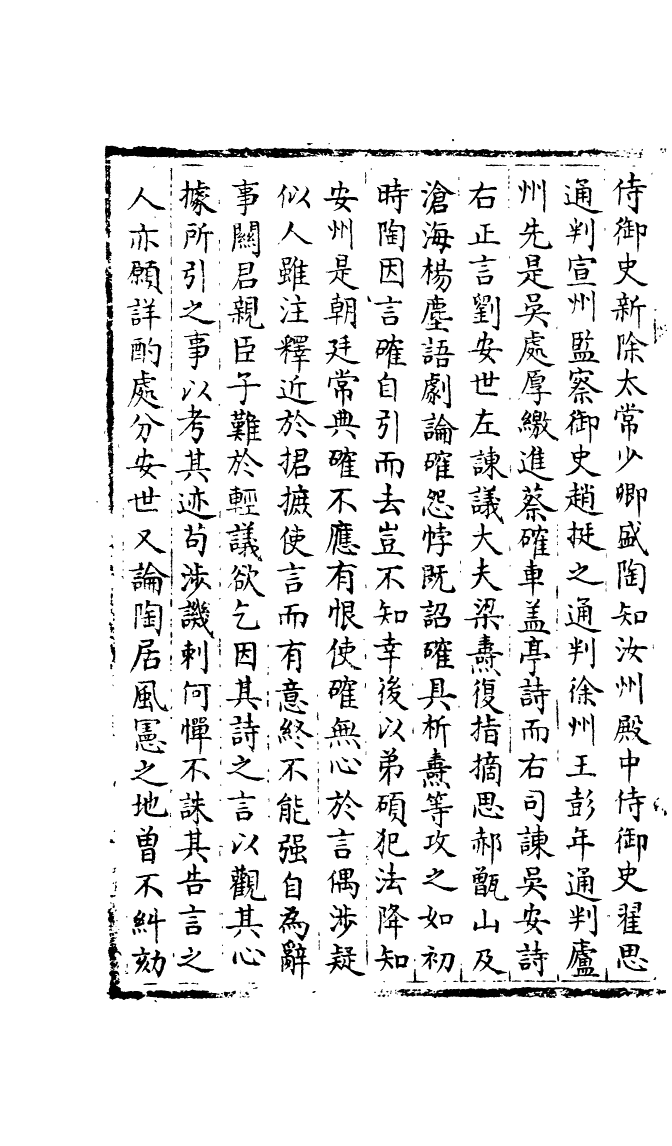 侍御史新除太常少卿盛陶知汝州殿中侍御史翟思
通判宣州監察御史趙挺之通判徐州王彭年通判廬
州先是吳處厚繳進蔡確車盖亭詩而右司諫吳安詩
右正言劉安世左諫議大夫梁燾復指摘思郝甑山及
滄海楊塵語劇論確怨悖既詔確具析燾等攻之如初
時陶因言確自引而去豈不知幸後以弟碩犯法降知
安州是朝廷常典確不應有恨使確無心於言偶涉疑
似人雖注釋近於捃摭使言而有意終不能强自為辭
事關君親臣子難於輕議欲乞因其詩之言以觀其心
據所引之事以考其迹苟涉譏刺何憚不誅其告言之
人亦願詳酌處分安世又論陶居風憲之地曾不糾劾